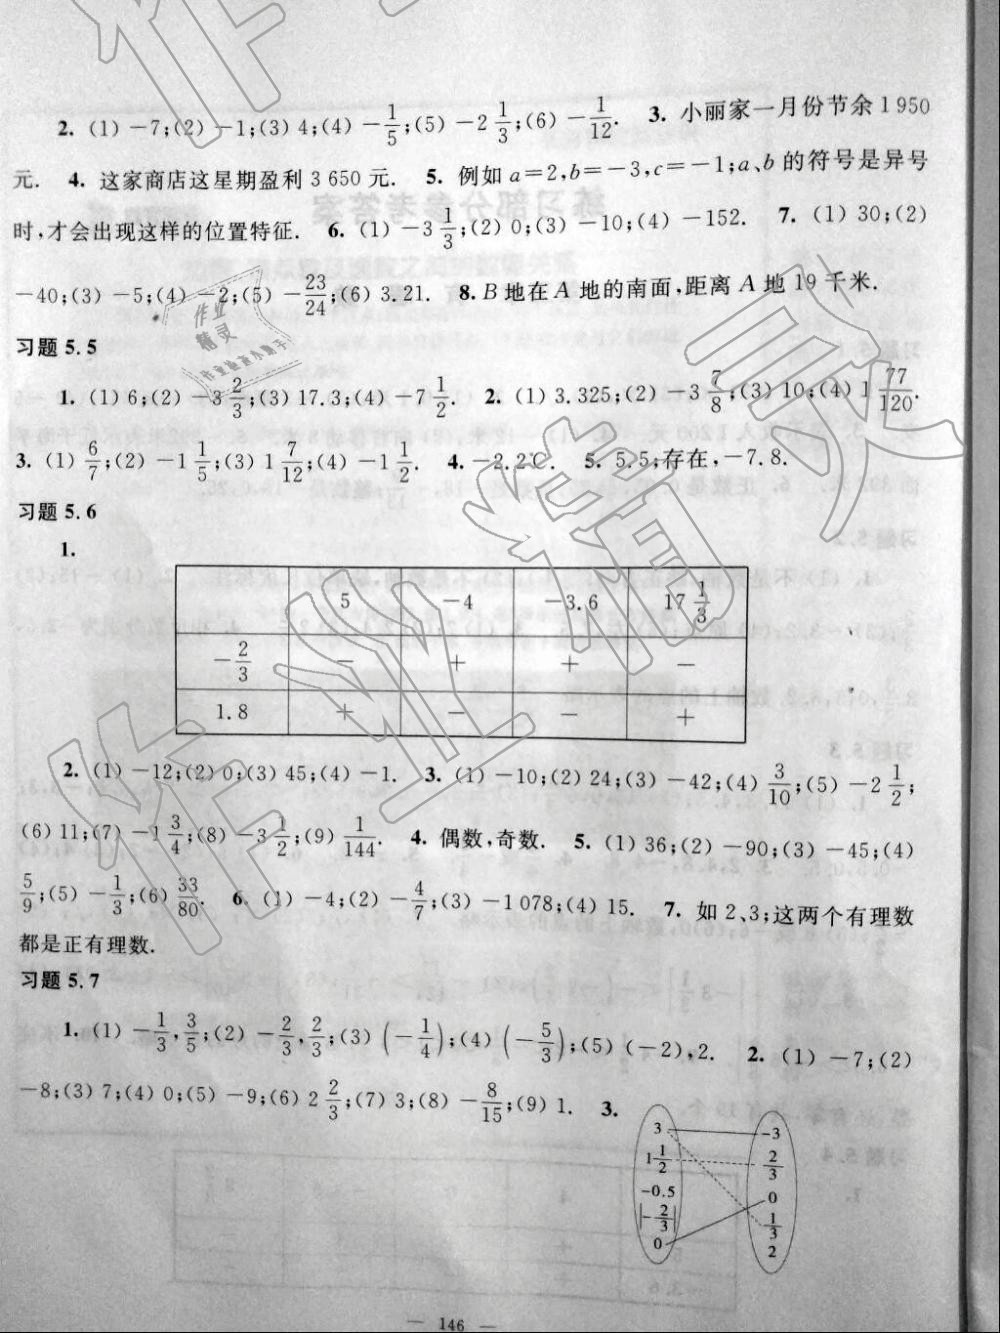 2. (1) -7;(2) -1;(3) 4;(4) -1/5;(5) -2 1/3;(6) -1/12. 3. 小丽家一月份节余 1 950
元. 4. 这家商店这星期盈利 3 650 元. 5. 例如 a=2,b=-3,c=-1;a、b 的符号是异号
时,才会出现这样的位置特征. 6. (1) -3 1/3;(2) 0;(3) -10;(4) -152. 7. (1) 30;(2)
-40;(3) -5;(4) -2;(5) -23/24;(6) 3.21. 8. B 地在 A 地的南面,距离 A 地 19 千米.
习题 5.5
1. (1) 6;(2) -3 2/3;(3) 17.3;(4) -7 1/2. 2. (1) 3.325;(2) -3 7/8;(3) 10;(4) 1 77/120.
3. (1) 6/7;(2) -1 1/5;(3) 1 7/12;(4) -1 1/2. 4. -2.2℃. 5. 5.5;存在,-7.8.
习题 5.6
1.
5 -4 -3.6 17 1/3
-2/3 - + + -
1.8 + - - +
2. (1) -12;(2) 0;(3) 45;(4) -1. 3. (1) -10;(2) 24;(3) -42;(4) 3/10;(5) -2 1/2;
(6) 11;(7) -1 3/4;(8) -3 1/2;(9) 1/144. 4. 偶数,奇数. 5. (1) 36;(2) -90;(3) -45;(4)
5/9;(5) -1/3;(6) 33/80. 6. (1) -4;(2) -4/7;(3) -1 078;(4) 15. 7. 如 2、3;这两个有理数
都是正有理数.
习题 5.7
1. (1) -1/3,3/5;(2) -2/3,2/3;(3) (-1/4);(4) (-5/3);(5) (-2),2. 2. (1) -7;(2)
-8;(3) 7;(4) 0;(5) -9;(6) 2 2/3;(7) 3;(8) -8/15;(9) 1. 3.
3 -3
1 1/2 2/3
-0.5 0
|-2/3| 1/3
0 2
— 146 —
作业精灵
作业精灵